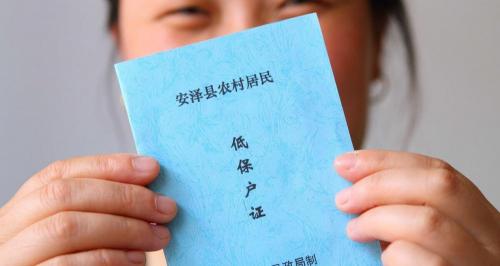 安泽县农村居民
低保户证
政局制